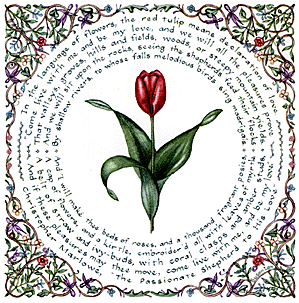 In the language of flowers, the red tulip means declaration of love
Come live with me and be my love, and we will all the pleasures prove
That valleys, groves, hills and fields, woods, or steepy mountain yields
seeing the shepherds
By shallow rivers to whose falls melodious birds sing madrigals
I will make thee beds of roses, and a thousand fragrant posies
of flowers, and a kirtle embroider'd all with leaves of myrtle
and ivy-buds, with coral clasps and amber studs
if these pleasures may thee move, come live with me and be my love
Marlowe The Passionate Shepherd to his Love